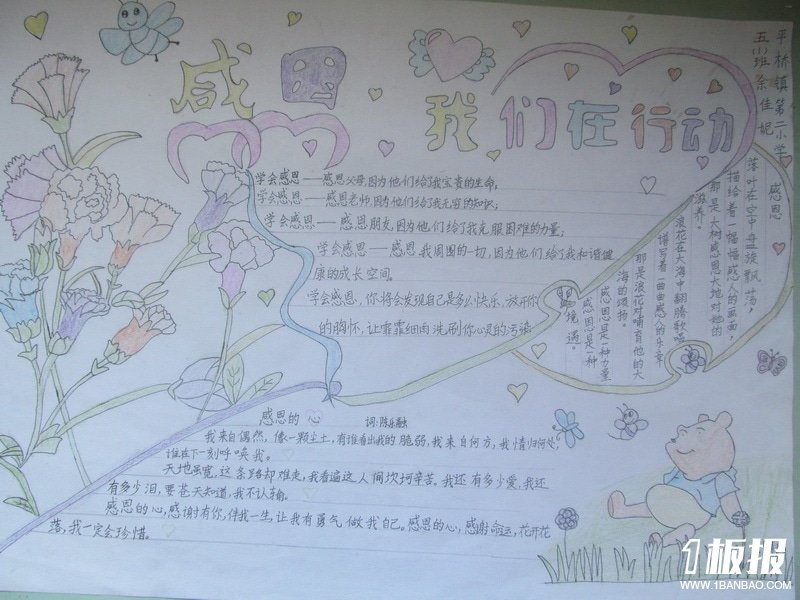 感恩 我们在行动
平桥镇第二小学
五(1)班 余佳妮
学会感恩——感恩父母,因为他们给了我宝贵的生命;
学会感恩——感恩老师,因为他们给了我无穷的知识;
学会感恩——感恩朋友,因为他们给了我克服困难的力量;
学会感恩——感恩我周围的一切,因为他们给了我和谐健
康的成长空间。
学会感恩,你将会发现自己是多么快乐,放开你
的胸怀,让霏霏细雨洗刷你心灵的污染
感恩
落叶在空中盘旋飘荡,
描绘着一幅幅感人的画面,
那是大树感恩大地对他的
滋养。
浪花在大海中翻腾歌唱
谱写着一曲曲感人的乐章
那是浪花对哺育他的大
海的颂扬。
感恩是一种力量
感恩是一种
境遇。
感恩的心
词:陈乐融
我来自偶然,像一颗尘土,有谁看出我的脆弱,我来自何方,我情归何处,
谁在下一刻呼唤我。
天地虽宽,这条路却难走,我看遍这人间坎坷辛苦。我还有多少爱,我还
有多少泪,要苍天知道,我不认输。
感恩的心,感谢有你,伴我一生,让我有勇气做我自己。感恩的心,感谢命运,花开花
落,我一定会珍惜。
1板报
WWW.1BANBAO.COM